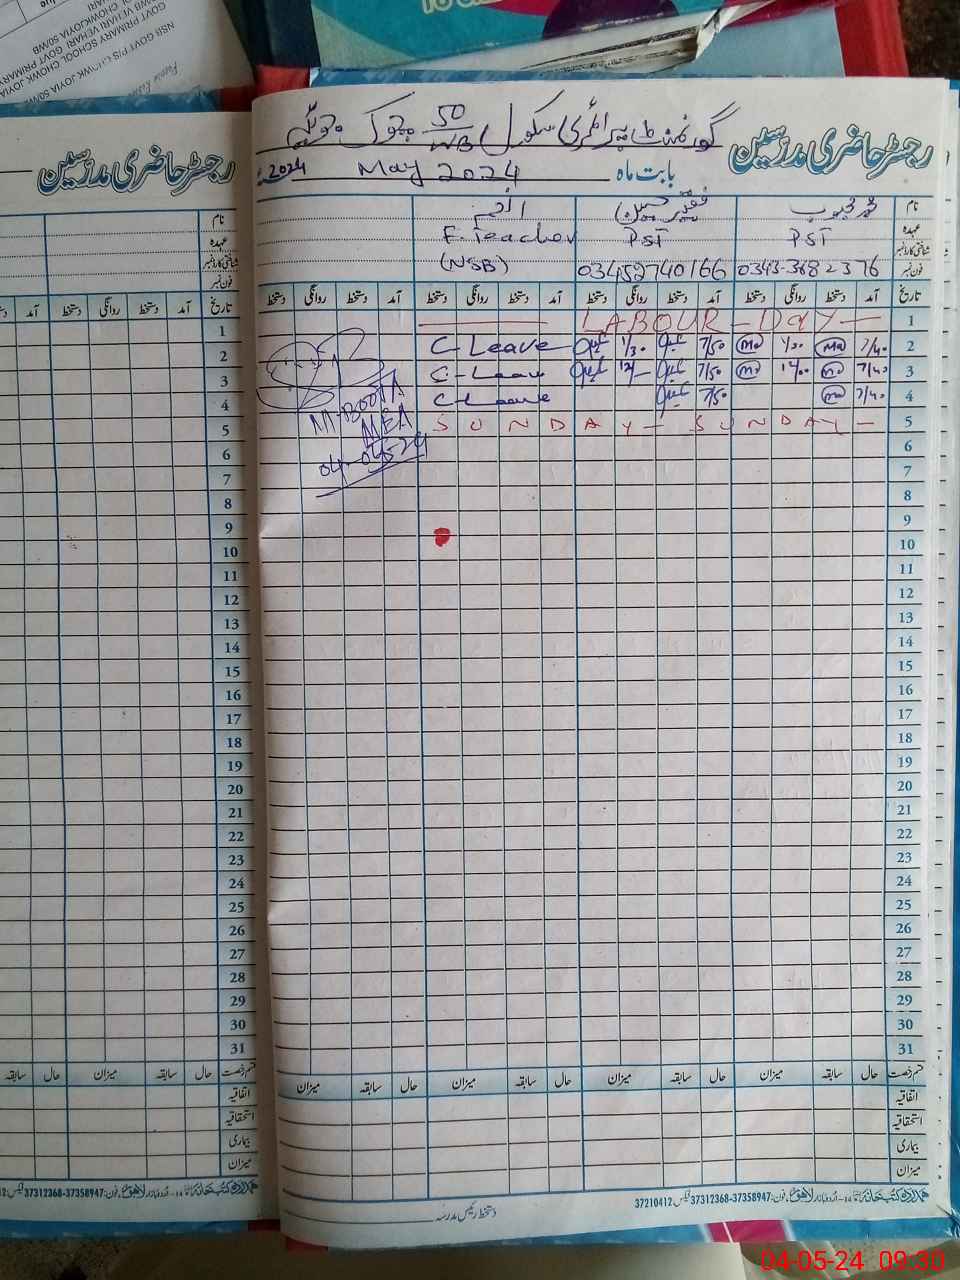 NSB GOVT P/S CHOWK JOYIA 50WB
GOVT PRIMARY SCHOOL CHOWK JOYIA 50WB
رجسٹر حاضری مدرسین
گورنمنٹ پرائمری سکول 50/WB چوک جوئیہ
بابت ماہ May 2024 2024
نام محمد محبوب فقیر حسین انجم
عہدہ PST PST E. Teacher
شناختی کارڈ نمبر (NSB)
فون نمبر 0343-3682376 03452740166
تاریخ آمد دستخط روانگی دستخط آمد دستخط روانگی دستخط آمد دستخط روانگی دستخط آمد دستخط روانگی دستخط
1 LABOUR - Day -
2 7/40 1/30 7/50 1/30 C-Leave
3 7/40 12/00 7/50 12/ C-Leave
4 7/40 7/50 C-Leave
5 SUNDAY - SUNDAY -
M-BOOTA
MEA
04-05-24
6
7
8
9
10
11
12
13
14
15
16
17
18
19
20
21
22
23
24
25
26
27
28
29
30
31
قسم رخصت حال سابقہ میزان حال سابقہ میزان حال سابقہ میزان حال سابقہ میزان
اتفاقیہ
استحقاقیہ
بیماری
میزان
فون: 37358947-37312368 فیکس 37210412
دستخط رئیس مدرسہ
رجسٹر حاضری مدرسین
نام
عہدہ
شناختی کارڈ نمبر
فون نمبر
تاریخ آمد دستخط روانگی دستخط آمد دستخط
1
2
3
4
5
6
7
8
9
10
11
12
13
14
15
16
17
18
19
20
21
22
23
24
25
26
27
28
29
30
31
قسم رخصت حال سابقہ میزان حال سابقہ
اتفاقیہ
استحقاقیہ
بیماری
میزان
فون: 37358947-37312368 فیکس
04-05-24 09:30